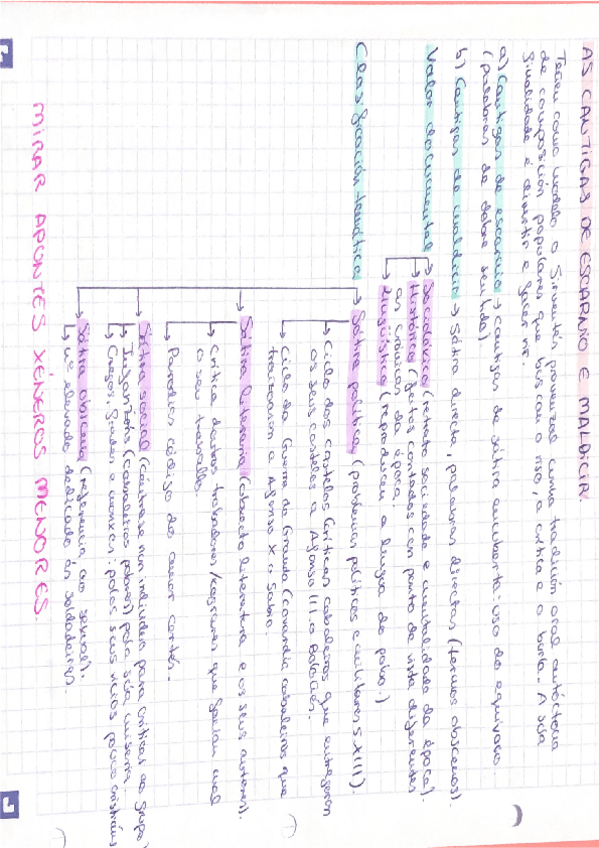 AS CANTIGAS DE ESCARNIO E MALDICIR.
Teñen como modelo o Sirventés provenzal cunha tradición oral autóctona
de composición populares que buscan o riso, a crítica e a burla. A súa
finalidade é divertir e facer rir.
a) Cantigas de escarnio → cantigas de sátira encuberta: uso do equívoco.
(palabras de dobre sentido).
b) Cantigas de maldicir → Sátira directa, palabras directas (termos obscenos).
Valor documental
Sociolóxico (retrato sociedade e mentalidade da época).
Histórico (feitos contados con punto de vista diferentes
as crónicas da época.
Lingüístico (reproducen a lingua do pobo.)
Clasificación temática
Sátira política (polémicas políticas e militares S XIII).
Ciclo dos castelos (críticas cabaleiros que entregaron
os seus castelos a Afonso III, o Boloñés.
Ciclo da Guerra de Granada (covardía cabaleiros que
traizoaron a Afonso X o Sabio.
Sátira literaria (obxecto literatura e os seus autores).
Crítica doutros trobadores/xograres que fan mal
o seu traballo.
Parodias código do amor cortés.
Sátira social (céntrase nun individuo para criticar ao grupo)
Infanzóns (cabaleiros pobres) pola súa miseria.
Cregos, frades e monxes: polos seus vicios pouco cristiáns
Sátira obscena (referencia ao sexual).
nº elevado dedicado ás soldadeiras.
MIRAR APONTES XÉNEROS MENORES.